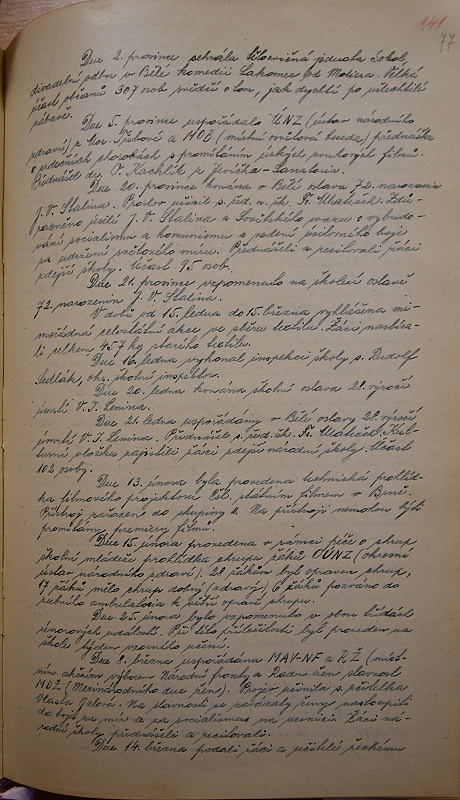 141
77
Dne 2. prosince sehrála tělocvičná jednota Sokol,
divadelní odbor v Bělé komedii Lakomec od Moliera. Velká
účast občanů 307 osob svědčí o tom, jak dychtí po ušlechtilé
zábavě.
Dne 5. prosince uspořádalo ÚNZ (ústav národního
zdraví) z Mor. Třebové a MOB (místní osvětová beseda) přednášku
o srdečních chorobách s promítáním úzkých zvukových filmů.
Přednášel dr. O. Kachlík z Jevíčka - Sanatoria.
Dne 20. prosince konána v Bělé oslava 72. narozenin
J. V. Stalina. Proslov učinil s. řed. n. šk. Fr. Matěček. Zdů-
razněno úsilí J. V. Stalina a Sovětského svazu o vybudo-
vání socialismu a komunismu a vedení úsilovného boje
za udržení světového míru. Přednášeli a recitovali žáci
zdejší školy. Účast 95 osob.
Dne 21. prosince vzpomenuto na školní oslavě
72. narozenin J. V. Stalina.
V době od 15. ledna do 15. března vyhlášena mi-
mořádná celostátní akce ve sběru textilu. Žáci nasbíra-
li celkem 457 kg starého textilu.
Dne 16. ledna vykonal inspekci školy s. Rudolf
Sedlák, okr. školní inspektor.
Dne 20. ledna konána školní oslava 28. výročí
úmrtí V. I. Lenina.
Dne 21. ledna uspořádány v Bělé oslavy 28. výročí
úmrtí V. I. Lenina. Přednášel s. řed. šk. Fr. Matěček. Kul-
turní vložku zajistili žáci zdejší národní školy. Účast
102 osoby.
Dne 13. února byla provedena technická prohlíd-
ka filmového projektoru Čsl. státním filmem v Brně.
Přístroj zařazen do skupiny II. Na přístroji nemohou býti
promítány premiéry filmů.
Dne 15. února provedena v rámci péče o chrup
školní mládeže prohlídka chrupu žáků OÚNZ (okresní
ústav národního zdraví). 28 žákům byl opraven chrup,
17 žáků mělo chrup dobrý (zdravý) 6 žáků pozváno do
zubního ambulatoria k větší opravě chrupu.
Dne 25. února bylo vzpomenuto v obou třídách
únorových událostí. Při této příležitosti byl proveden na
škole týden vzorného učení.
Dne 8. března uspořádána MAV-NF a RŽ (míst-
ním akčním výborem Národní fronty a Radou žen) slavnost
MDŽ (Mezinárodního dne žen). Projev učinila s. učitelka
Vlasta Zalová. Na slavnosti se zavázaly ženy nastoupiti
do boje za mír a za socialismus na vesnici. Žáci ná-
rodní školy přednášeli a recitovali.
Dne 14. března podali žáci a učitelé řeckému